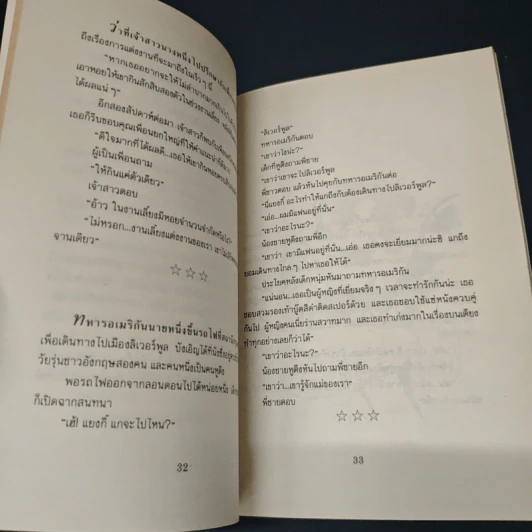 ว่าที่เจ้าสาวนางหนึ่งไปปรึกษา
ถึงเรื่องการแต่งงานที่จะมาถึงในเร็วๆ นี้
"หากเธออยากจะให้
เอาหอยให้เขากินสักสิบสองตัวในช่วงงานเลี้ยง
ได้ผลแน่ๆ"
อีกสองสัปดาห์ต่อมา เจ้าสาวก็พบกับเพื่อน
เธอก็รีบขอบคุณเพื่อนยกใหญ่ที่ให้คำแนะนำ
"ดีใจมากที่ได้ผลดี...เธอให้เขากินหอย
ผู้เป็นเพื่อนถาม
"ให้กินแค่ตัวเดียว"
เจ้าสาวตอบ
"อ้าว ในงานเลี้ยงมีหอยจำนวนจำกัดหรือไง"
"ไม่หรอก...งานเลี้ยงแต่งงานของเรา
จานเดียว"
☆☆☆
ทหารอเมริกันนายหนึ่งขึ้นรถไฟที่
เพื่อเดินทางไปเมืองลิเวอร์พูล บังเอิญได้ที่นั่ง
วัยรุ่นชาวอังกฤษสองคน และคนหนึ่งเป็นคนหูตึง
พอรถไฟออกจากลอนดอนไปได้หน่อยหนึ่ง
ก็เปิดฉากสนทนา
"เฮ้! แยงกี้ แกจะไปไหน?"
32
"ลิเวอร์พูล"
ทหารอเมริกันตอบ
"เขาว่าไรนะ?"
เด็กที่หูตึงถามพี่ชาย
"เขาว่าเขาจะไปลิเวอร์พูล"
พี่ชายตอบ แล้วหันไปคุยกับทหารอเมริกันต่อ
"นี่แยงกี้ อะไรทำให้แกถึงกับต้องเดินทางไปลิเวอร์พูล?"
"เอ่อ...ผมมีแฟนอยู่ที่นั่น"
"เขาว่าอะไรนะ?"
น้องชายหูตึงถามพี่อีก
"เขาว่า เขามีแฟนอยู่ที่นั่น...เอ่อ เธอคงจะเยี่ยมมากน่ะซิ แกถึง
ยอมเดินทางไกลๆ ไปหาเธอให้ได้"
ประโยคหลังเด็กหนุ่มหันมาถามทหารอเมริกัน
"แน่นอน...เธอเป็นผู้หญิงที่เยี่ยมจริงๆ เวลาจะทำรักกันน่ะ เธอ
ชอบสวมรองเท้าบู๊ตสีดำติดสเปอร์ด้วย และเธอชอบใช้แซ่หนังควบคู่
กันไป ผู้หญิงคนนี้ย่านสวาทมาก และเธอทำเก่งมากในเรื่องบนเตียง
ทำทุกอย่างเลยก็ว่าได้"
"เขาว่าอะไรนะ?"
น้องชายหูตึงหันไปถามพี่ชายอีก
"เขาว่า...เขารู้จักแม่ของเรา"
พี่ชายตอบ
☆☆☆
33